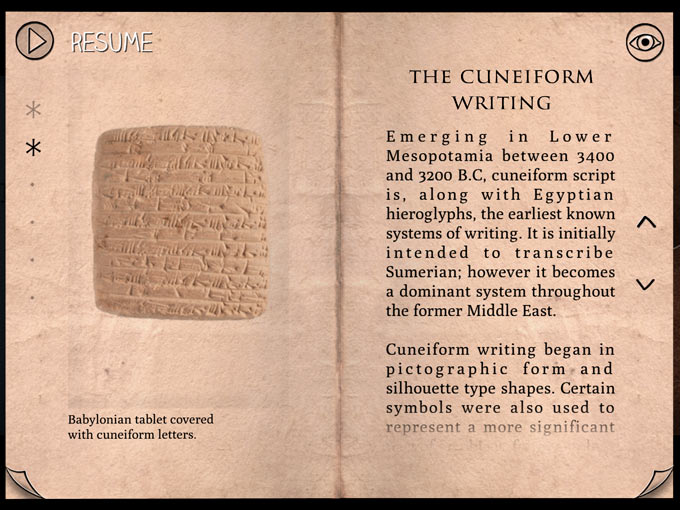 RESUME
Babylonian tablet covered
with cuneiform letters.
THE CUNEIFORM
WRITING
Emerging in Lower
Mesopotamia between 3400
and 3200 B.C, cuneiform script
is, along with Egyptian
hieroglyphs, the earliest known
systems of writing. It is initially
intended to transcribe
Sumerian; however it becomes
a dominant system throughout
the former Middle East.
Cuneiform writing began in
pictographic form and
silhouette type shapes. Certain
symbols were also used to
represent a more significant